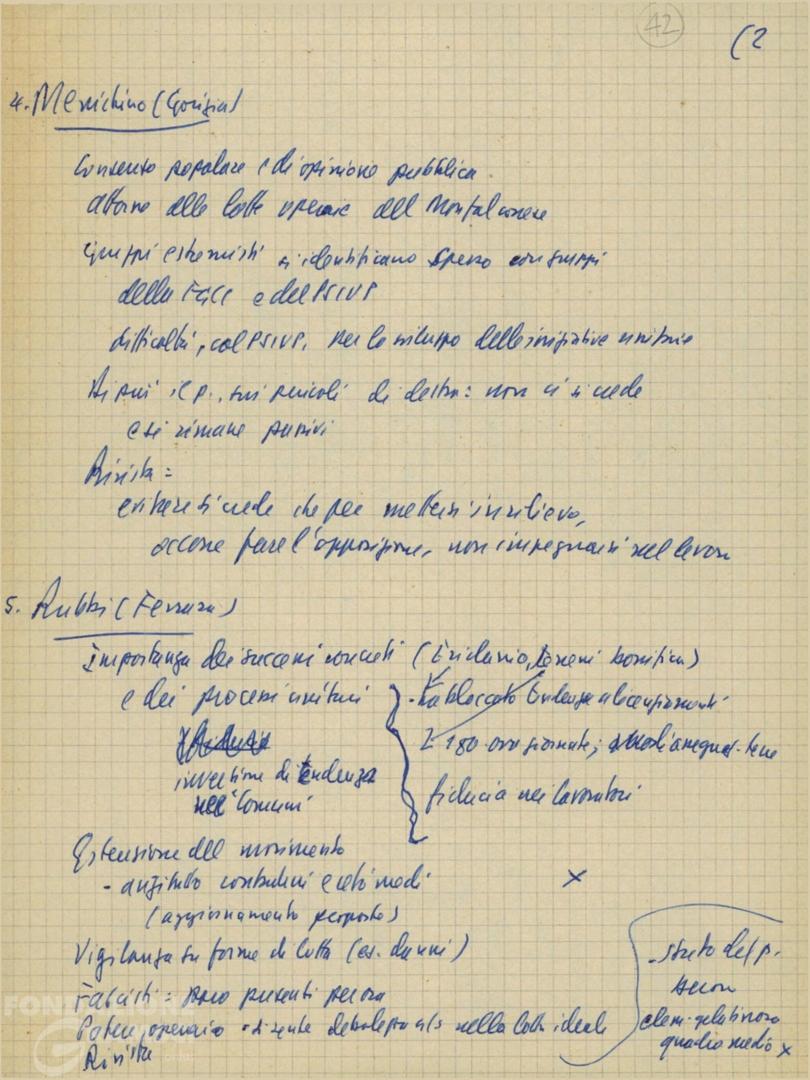 42
(2
4. Menichino (Gorizia)
Consenso popolare e di opinione pubblica
attorno alle lotte operaie del Monfalconese
Gruppi estremisti si identificano spesso con gruppi
della FGCI e del PSIUP
difficoltà, col PSIUP, per lo sviluppo delle iniziative unitarie
di più il p., sui pericoli di destra: non ci si crede
e si rimane passivi
Rivista =
evitare si creda che per mettersi in rilievo,
occorre fare l'opposizione, non impegnarsi nel lavoro
5. Rubbi (Ferrara)
Importanza dei successi concreti (Eridania, terreni bonifica)
e dei processi unitari
- ha bloccato tendenza a licenziamenti
180 giornate;
inversione di tendenza
nei Comuni
fiducia nei lavoratori
Estensione del movimento
- anzitutto contadini e ceti medi
(aggiornamento proposte)
x
Vigilanza su forme di lotta (es. danni)
Fascisti = poco presenti per ora
Potere operaio - si sente nella lotta ideale
Rivista
- stato del p.
quadro medio x
FOND
G